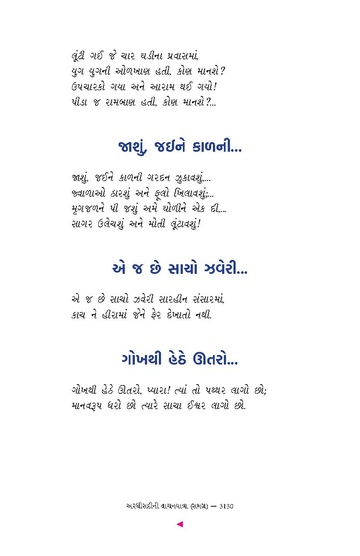 લૂંટી ગઈ જે ચાર ઘડીના પ્રવાસમાં,
યુગ યુગની ઓળખાણ હતી, કોણ માનશે?
ઉપચારકો ગયા અને આરામ થઈ ગયો!
પીડા જ રામબાણ હતી, કોણ માનશે?...
જાશું, જઈને કાળની...
જાશું, જઈને કાળની ગરદન ઝુકાવશું,...
જ્વાળાઓ ઠારશું અને ફૂલો ખિલાવશું;...
મૃગજળને પી જશું અમે ઘોળીને એક દી,...
સાગર ઉલેચશું અને મોતી લૂંટાવશું!
એ જ છે સાચો ઝવેરી...
એ જ છે સાચો ઝવેરી સારહીન સંસારમાં,
કાચ ને હીરામાં જેને ફેર દેખાતો નથી.
ગોખથી હેઠે ઊતરો...
ગોખથી હેઠે ઊતરો, પ્યારા! ત્યાં તો પથ્થર લાગો છો;
માનવરૂપ ધરો છો ત્યારે સાચા ઈશ્વર લાગો છો.
અરધીસદીની વાચનયાત્રા (સમગ્ર) — 3130